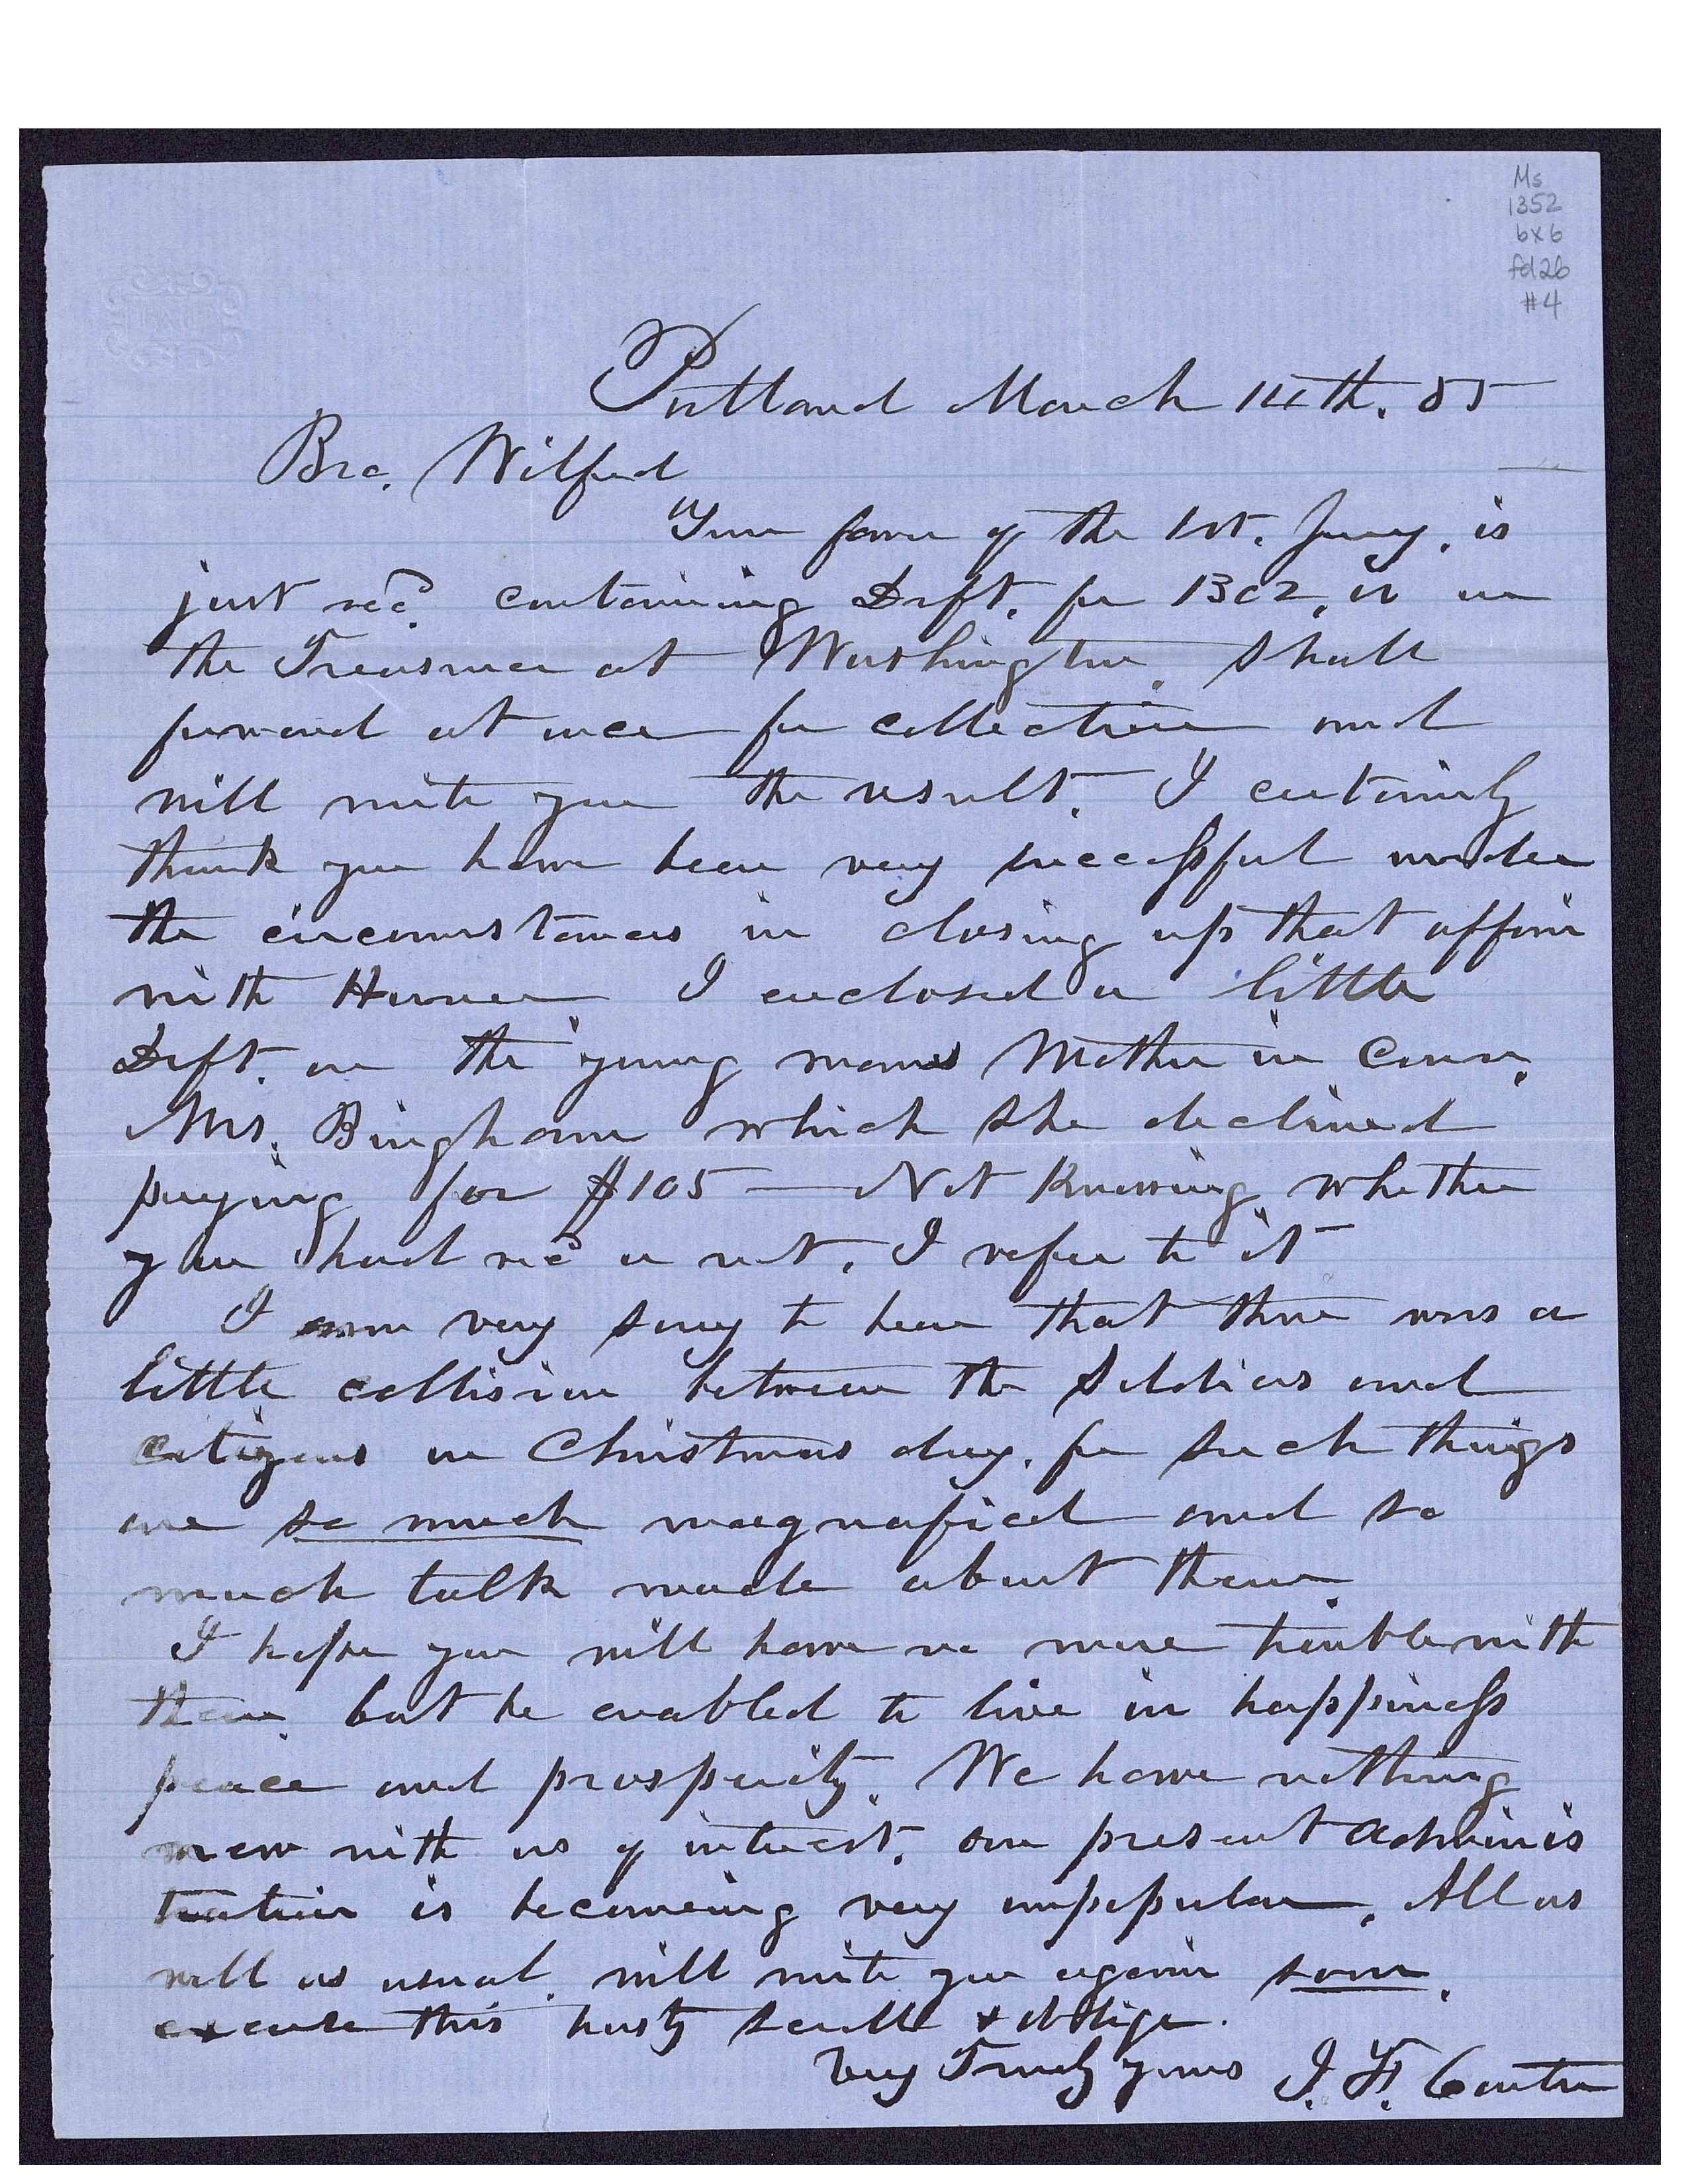 Ms
1352
bx 6
fd 26
#4
Portland March 14th. 55
Bro. Wilford
Your favor of the 1st. Jany. is
just recd containing Drft. for 1302. on
the Treasurer at Washington. Shall
forward at once for collection and
will write you the result. I certainly
think you have been very successful under
the circumstances in closing up that affair
with I enclosed a little
Drft. on the young mans Mother in Conn.
Mrs. Bingham which she declined
paying for $105 — Not Knowing whether
you had recd or not. I refer to it
I am very sorry to hear that there was a
little collision between the Soldiers and
citizens on Christmas day. for such things
are so much magnafied and so
much talk made about them.
I hope you will have no more trouble with
them. but be enabled to live in happiness
peace and prosperity. We have nothing
new with us of interest. our present adminis
tration is becomeing very unpopular. All as
well as usual. will write you again soon.
excuse this hasty scrall & oblige.
Very Truly yours I. F. Carter